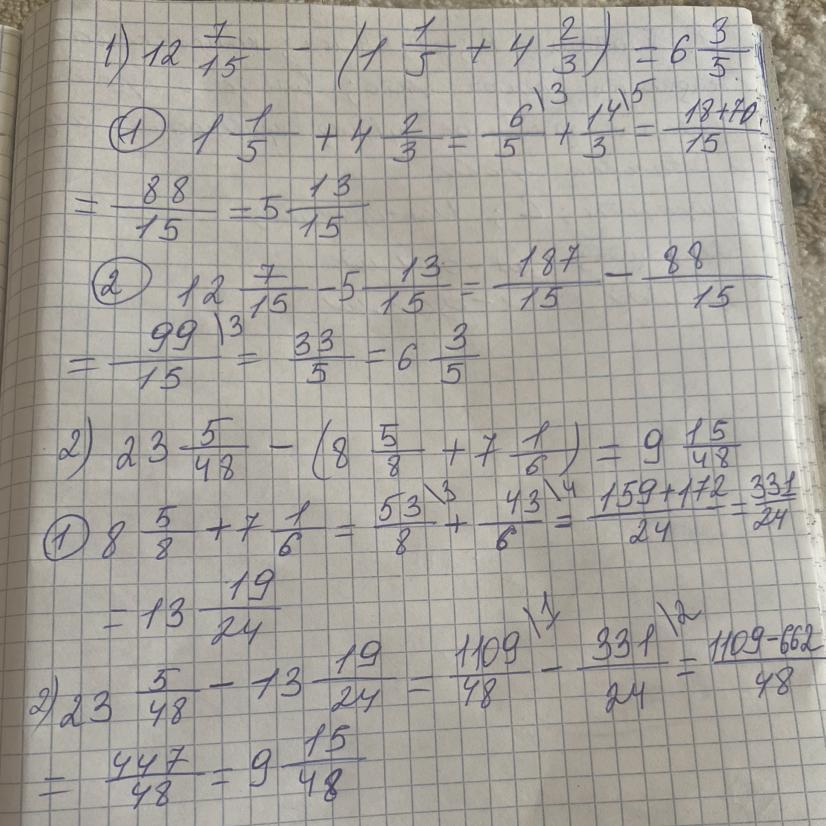 1) 12 7/15 - (1 1/5 + 4 2/3) = 6 3/5
① 1 1/5 + 4 2/3 = 6/5 \3 + 14/3 \5 = 18+70/15
= 88/15 = 5 13/15
② 12 7/15 - 5 13/15 = 187/15 - 88/15
= 99/15 \3 = 33/5 = 6 3/5
2) 23 5/48 - (8 5/8 + 7 1/6) = 9 15/48
① 8 5/8 + 7 1/6 = 53/8 \3 + 43/6 \4 = 159+172/24 = 331/24
= 13 19/24
2) 23 5/48 - 13 19/24 = 1109/48 \1 - 331/24 \2 = 1109-662/48
= 447/48 = 9 15/48